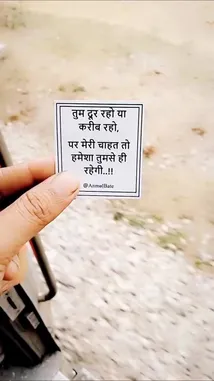 तुम दूर रहो या
करीब रहो,
पर मेरी चाहत तो
हमेशा तुमसे ही
रहेगी..!!
@AnmolBate